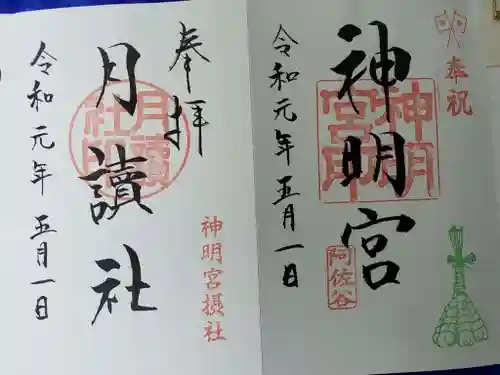 奉祝
神明宮
神明宮印
阿佐谷
令和元年 五月一日
奉拝
神明宮摂社
月讀社
月讀社印
令和元年 五月一日